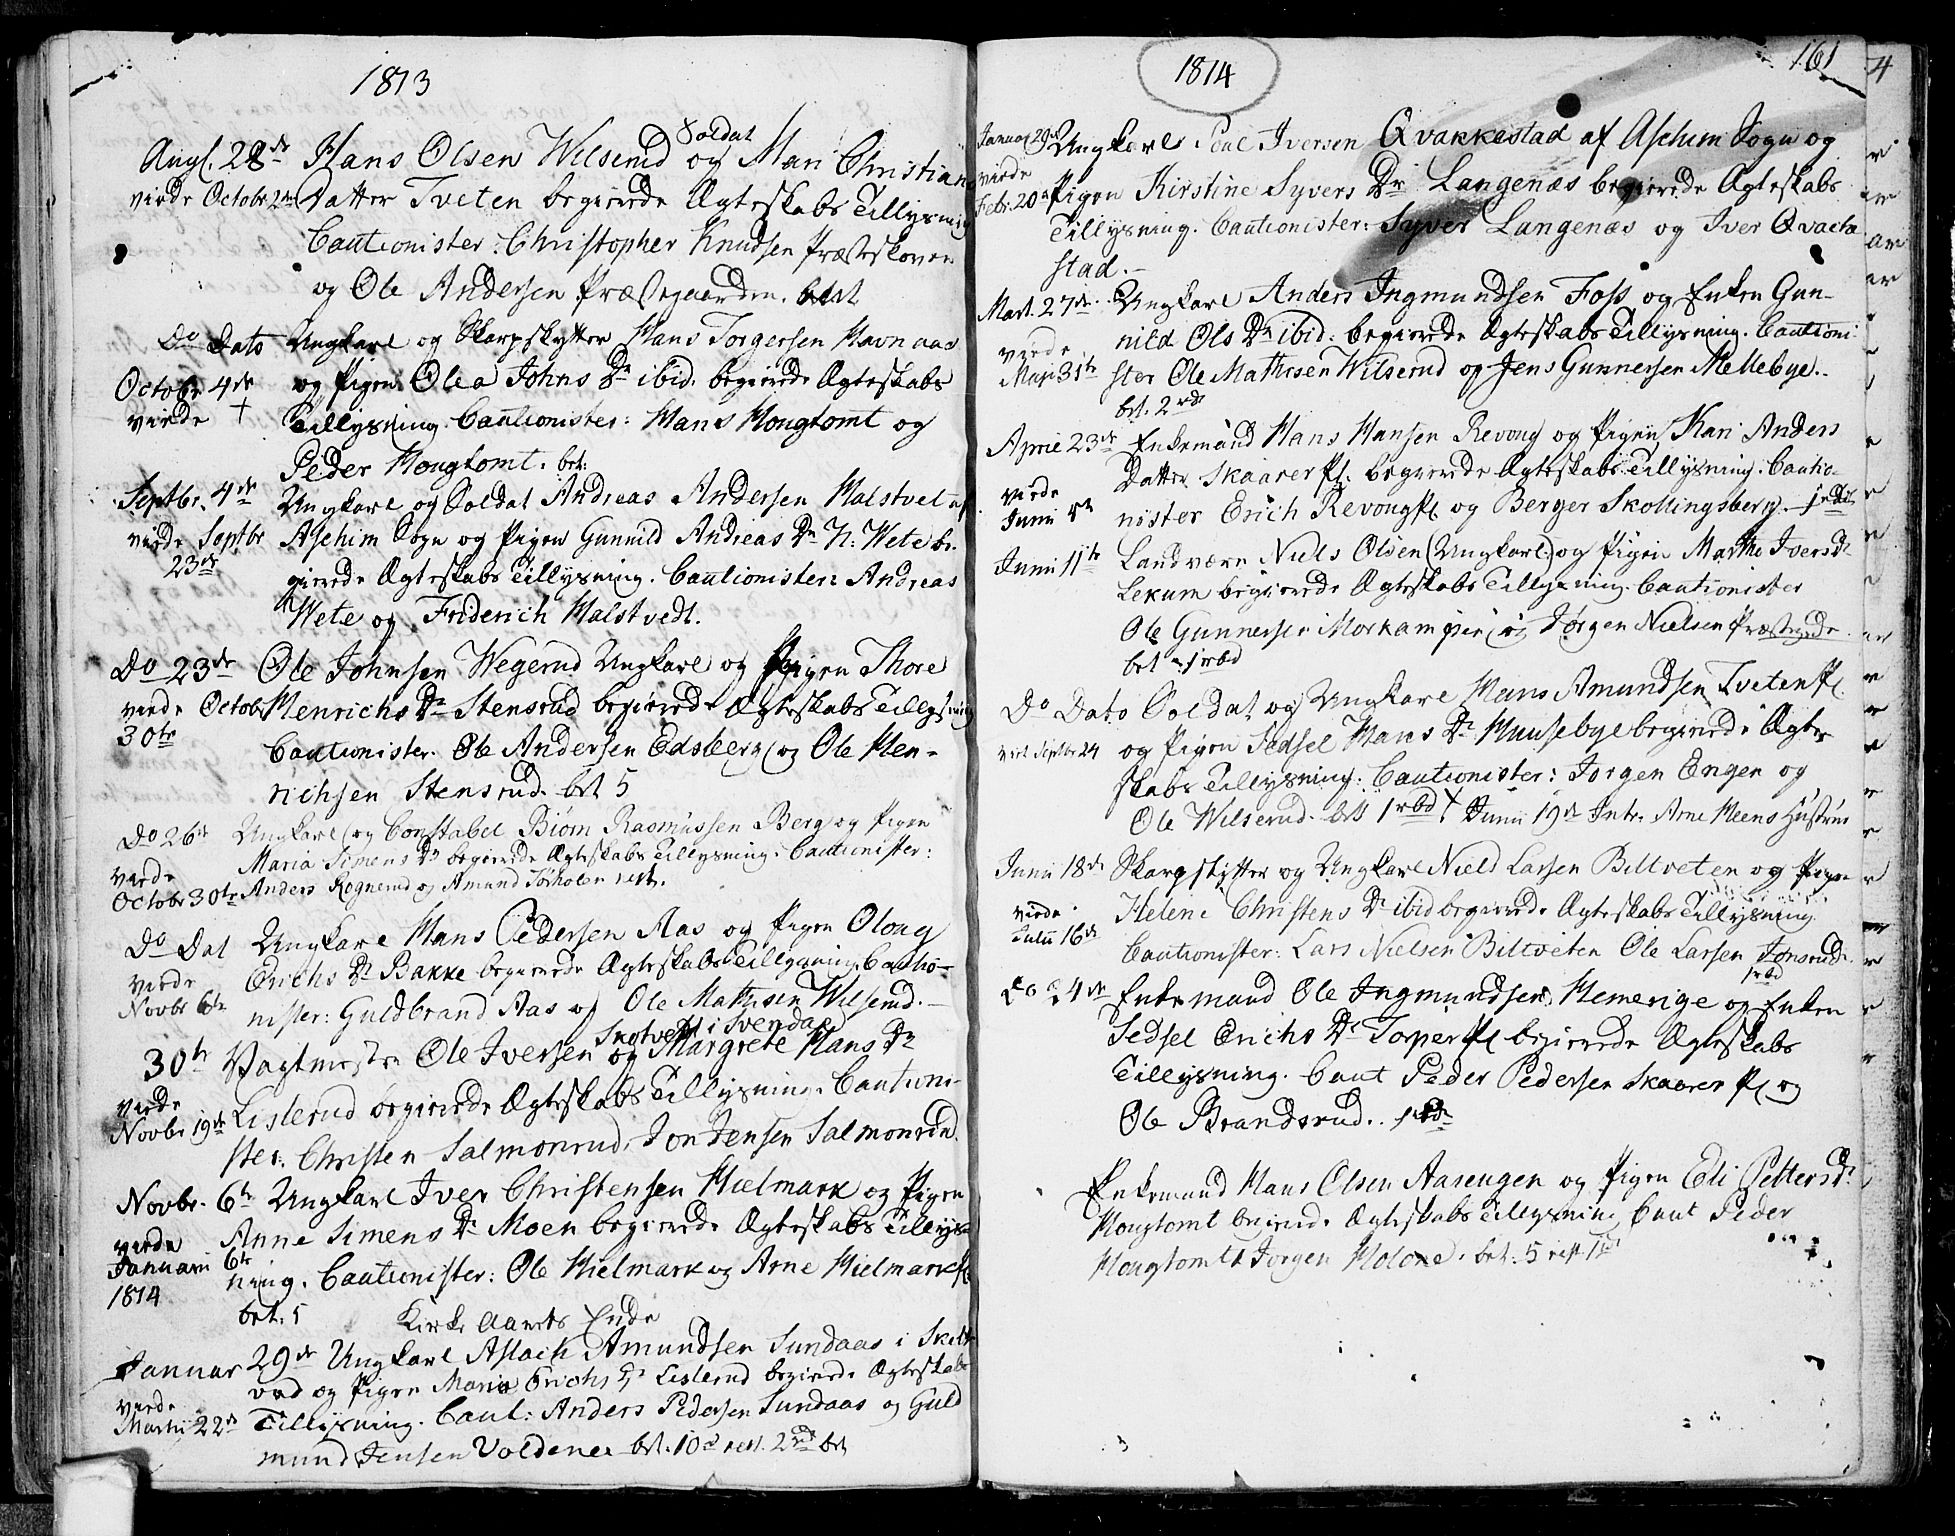 1813
Augs. 28de Hans Olsen Wilserud Soldat og Mari Christians
viede Octobr 2den Datter Tveten begierede Ægteskabs Tillysning
Cautionister: Christopher Knudsen Præsteskoven
og Ole Andersen Præstegaarden. betalt
Do Dato Ungkarl og Skarpskytter Hans Torgersen Havnaas
October 4de og Pigen Olea Johns Dr ibid. begierede Ægteskabs
viede † Tillysning Cautionister: Hans Hougtomt og
Peder Hougtomt. bet:
Septbr. 4de Ungkarl og Soldat Andreas Andersen Halstvet af
viede Septbr Aschim Sogn og Pigen Gunnild Andreas Dr N: Wete be-
23de gierede Ægteskabs Tillysning. Cautionister: Andreas
Wete og Friderich Halstvedt.
Do 23de Ole Johnsen Wegerud Ungkarl og Pigen Thore
viede Octobr Henrichs Dr Stensrud begierede Ægteskabs Tillysning
30te Cautionister. Ole Andersen Edsberg og Ole Hen-
richsen Stensrud. bet 5
Do 26de Ungkarl og Constabel Biørn Rasmussen Berg og Pigen
Maria Simens Dr begierede Ægteskabs Tillysning. Cautionister:
viede
Octobr 30te Anders Rognerud og Amund rest.
Do Dat Ungkarl Hans Pedersen Aas og Pigen Oloug
viede Erichs Dr Bakke begierede Ægteskabs Tillysning. Cautio-
Novbr 6te nister: Guldbrand Aas og Ole Mathisen Wilserud.
Skotvedt i Svendal
30te Vagtmester Ole Iversen og Margrete Hans Dr
viede Lislerud begierede Ægteskabs Tillysning. Cautioni-
Novbr 19de ster. Christen Salmonrud, Jon Jensen Salmonrud.
Novbr. 6te Ungkarl Iver Christensen Hielmark og Pigen
viede Anne Simens Dr Moen begierede Ægteskabs Tillys-
Januarii 6te ning. Cautionister: Ole Hielmark og Arne Hielmark
1814 bet. 5
Kirke Aarets Ende
Januar 29de Ungkarl Aslach Amundsen Sundaas i Skibt-
ved og Pigen Maria Erichs Dr Lislerud begierede Ægteskabs
viede
Martii 22de Tillysning. Caut: Anders Pedersen Sundaas og Guld
mund Jensen Voldene bet. 10 rest. 2 bet
1814
161
Januar 29de Ungkarl Poul Iversen Qvakkestad af Aschim Sogn og
viede
Febr. 20de Pigen Kirstine Syvers Dr Langenæs begierede Ægteskabs
Tillysning. Cautionister: Syver Langenæs og Iver Qvache
stad.
Mart. 27de Ungkarl Anders Ingmundsen Foss og Enken Gun-
viede nild Ols Dr ibid: begierede Ægteskabs Tillysning. Cautioni-
Maji 31te ster Ole Mathisen Wilserud og Jens Gunnersen Mellebye.
bet. 2rd
Aprie 23de Enkemand Hans Hansen Revoug og Pigen Kari Anders
Datter Skaarer Pl. begierede Ægteskabs Tillysning. Cautio-
viede
Junii nister Erich Revoug Pl og Berger Skollingsberg. 1rbd
Junii 11te Landværn Niels Olsen (Ungkarl) og Pigen Marthe Ivers Dr
Lekum begierede Ægteskabs Tillysning. Cautionister
Ole Gunnersen Morkam og Jørgen Nielsen Præstegde
bet 1 rbd
Do Dato Soldat og Ungkarl Hans Amundsen Tveten Pl.
viet Septbr 24 og Pigen Sedsel Hans Dr Huusebye begierede Ægte
skabs Tillysning: Cautionister: Jorgen Engen og
Ole Wilserud. bett 1 rbd † Junii 19de Intr. Arne Heens Hustrue
Junii 18de Skarpskytter og Ungkarl Niels Larsen Biltveten og Pigen
viede Helene Christens Dr ibid begierede Ægteskabs Tillysning.
Julii 16de Cautionister: Lars Nielsen Biltveten Ole Larsen Jonsrud.
1rbd
Do 24de Enkemand Ole Ingmundsen Hemerige og Enken
Sedsel Erichs Dr Torper Pl begierede Ægteskabs
Tillysning. Caut Peder Pedersen Skaarer Pl og
Ole Brandsrud. 1rbd
Enkemand Hans Olsen Aasengen og Pigen Eli Petters Dr
Hougtomt begierede Ægteskabs Tillysning Caut Peder
Hougtomt Jorgen Holone. bet. 5 rest 1rd